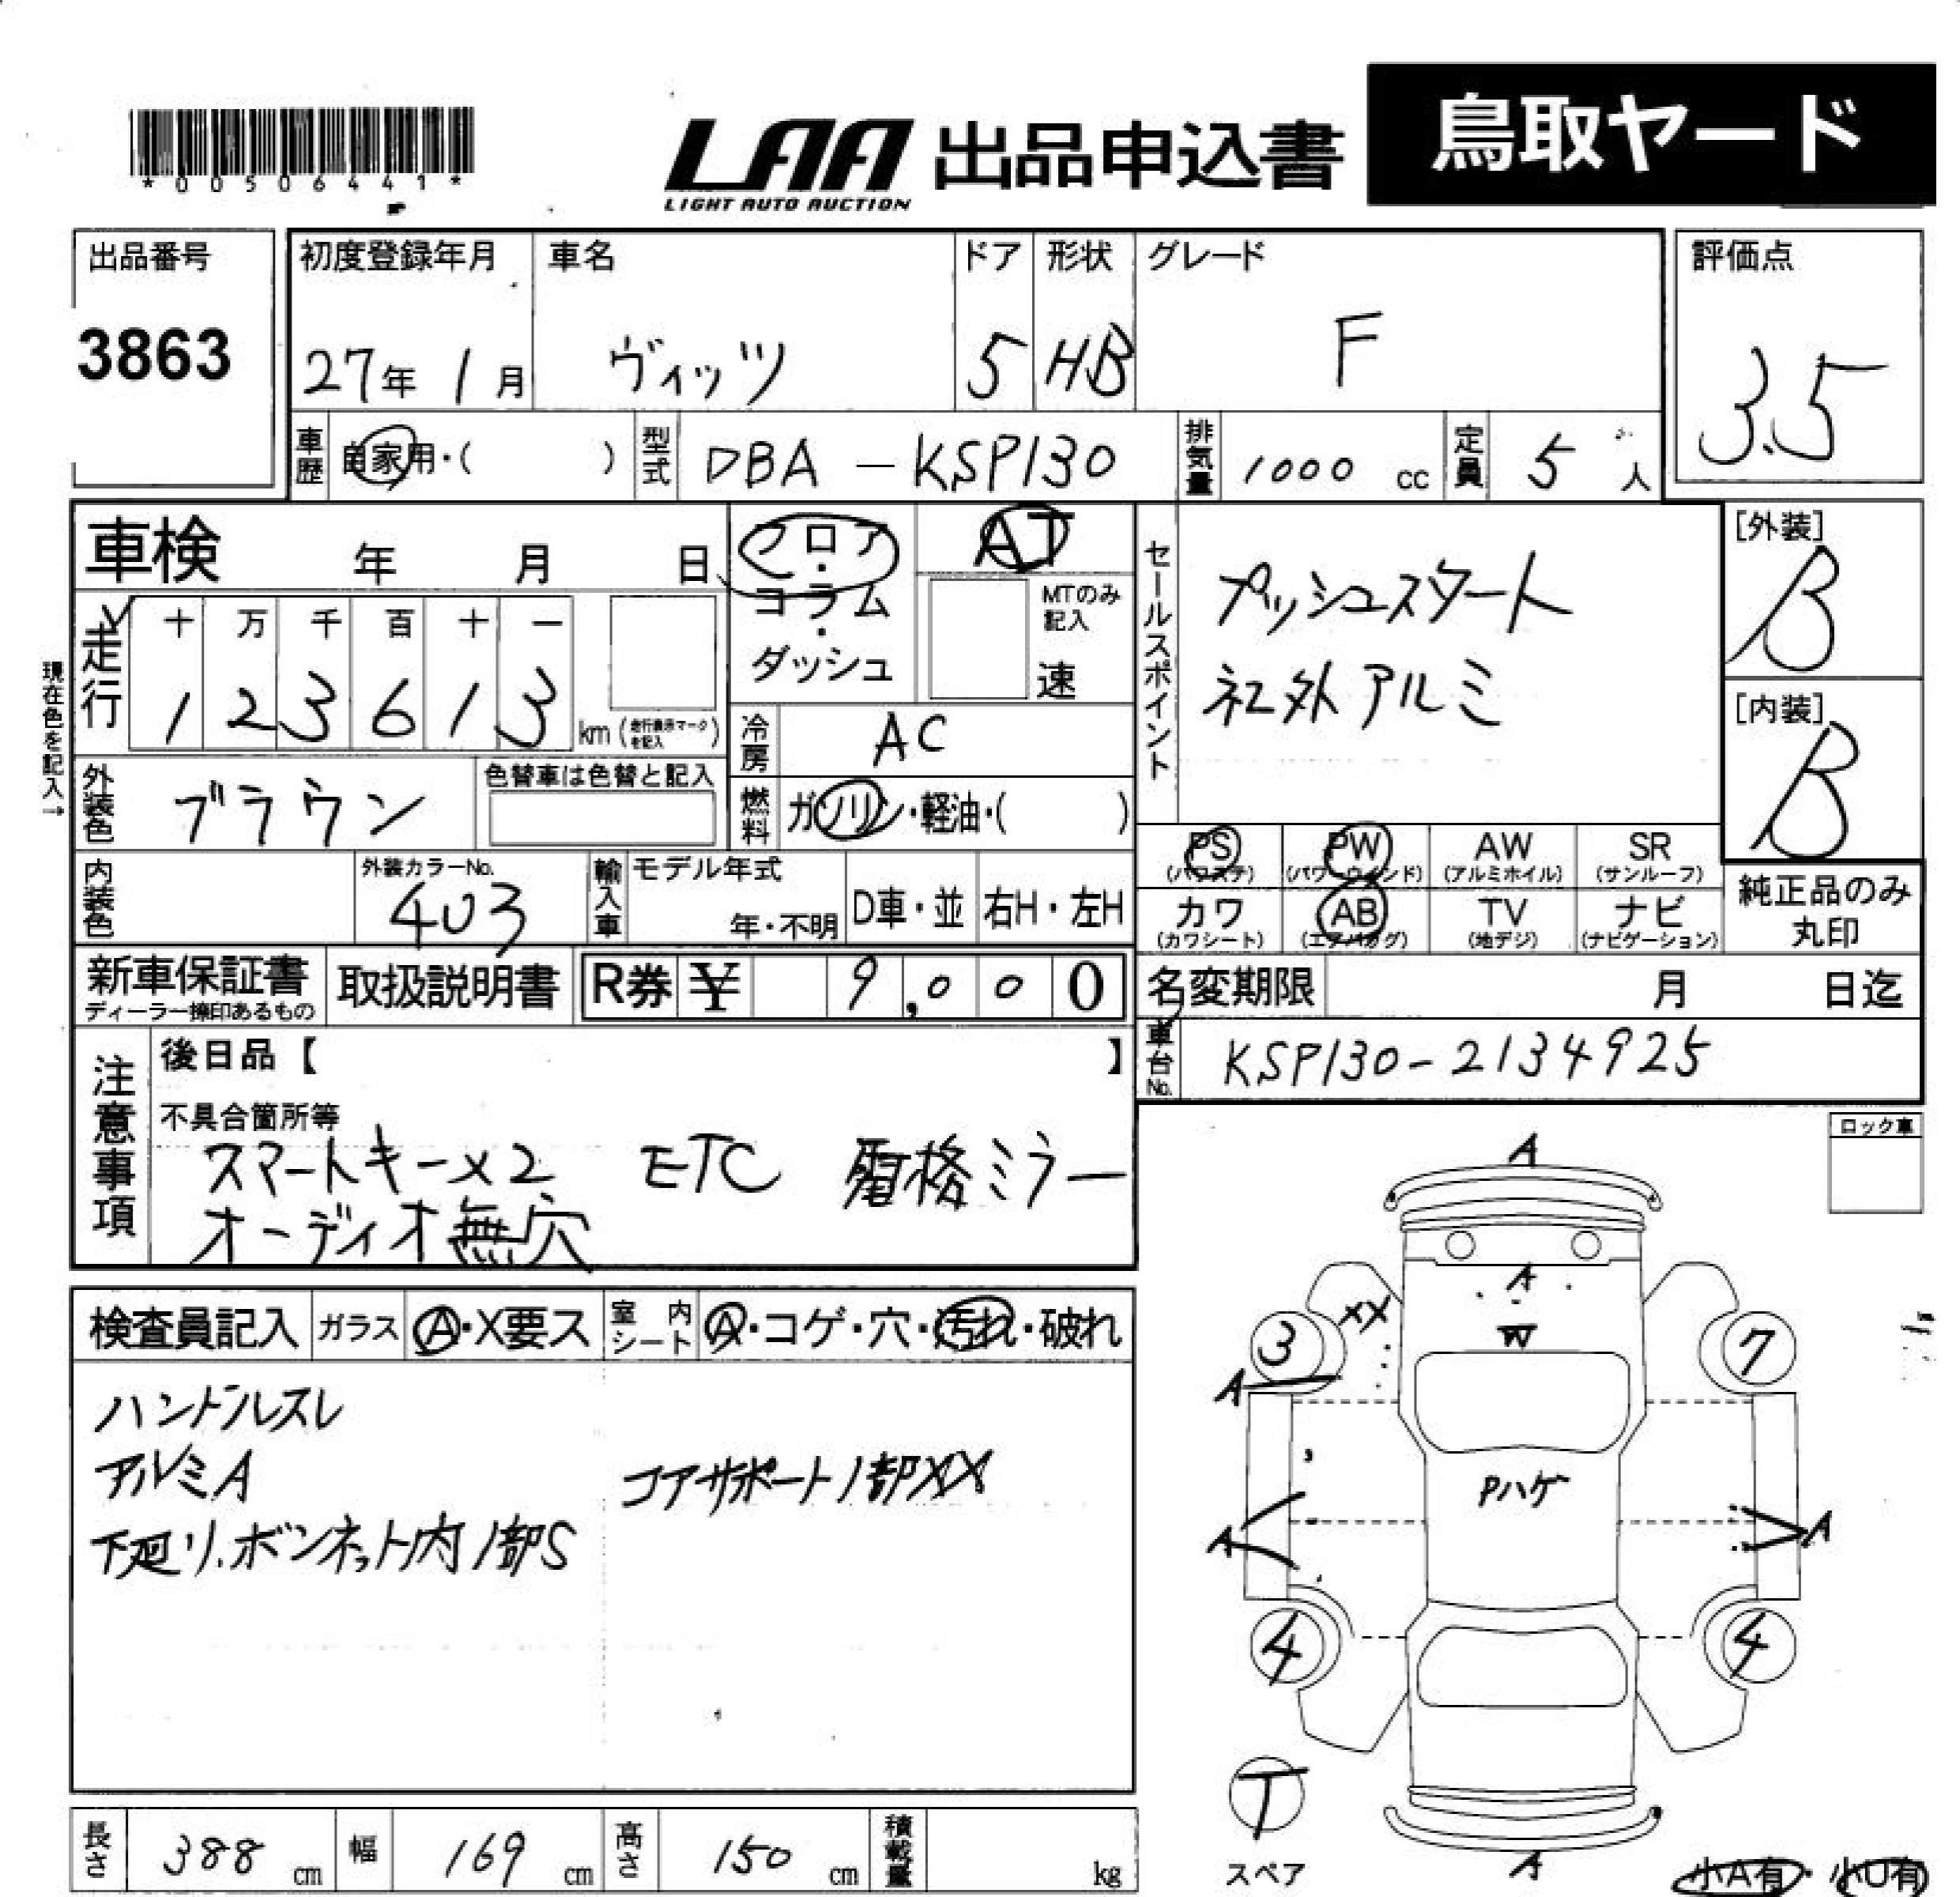 *00506441*
LAA 出品申込書 鳥取ヤード
LIGHT AUTO AUCTION
出品番号 初度登録年月 車名 ドア 形状 グレード 評価点
3863 27年 1月 ヴィッツ 5 HB F 3.5
車歴 自家用・( ) 型式 DBA-KSP130 排気量 1000 cc 定員 5 人
車検 年 月 日 フロア・コラム・ダッシュ AT
MTのみ記入 速
セールスポイント
プッシュスタート
社外アルミ
[外装] B
[内装] B
現在色を記入→
走行 十 万 千 百 十 一
1 2 3 6 1 3 km (走行表示マークを記入)
冷房 AC
外装色 ブラウン 色替車は色替と記入
燃料 ガソリン・軽油・( )
内装色 外装カラーNo. 4U3 輸入車 モデル年式 年・不明 D車・並 右H・左H
PS (パワステ) PW (パワーウィンド) AW (アルミホイル) SR (サンルーフ)
カワ (カワシート) AB (エアバッグ) TV (地デジ) ナビ (ナビゲーション)
純正品のみ丸印
新車保証書 ディーラー捺印あるもの 取扱説明書 R券 ¥ 9,000
名変期限 月 日迄
車台No. KSP130-2134925
注意事項
後日品【 】
不具合箇所等
スマートキー×2 ETC 電格ミラー
オーディオ無穴
ロック車
検査員記入 ガラス A・X要ス 室内シート A・コゲ・穴・汚れ・破れ
ハンドルスレ
アルミA コアサポート1部XX
下廻り.ボンネット内1部S
A
A
XX
W
3 7
A
Pハゲ
A A
4 4
T
スペア
A
小A有・小U有
長さ 388 cm 幅 169 cm 高さ 150 cm 積載量 kg